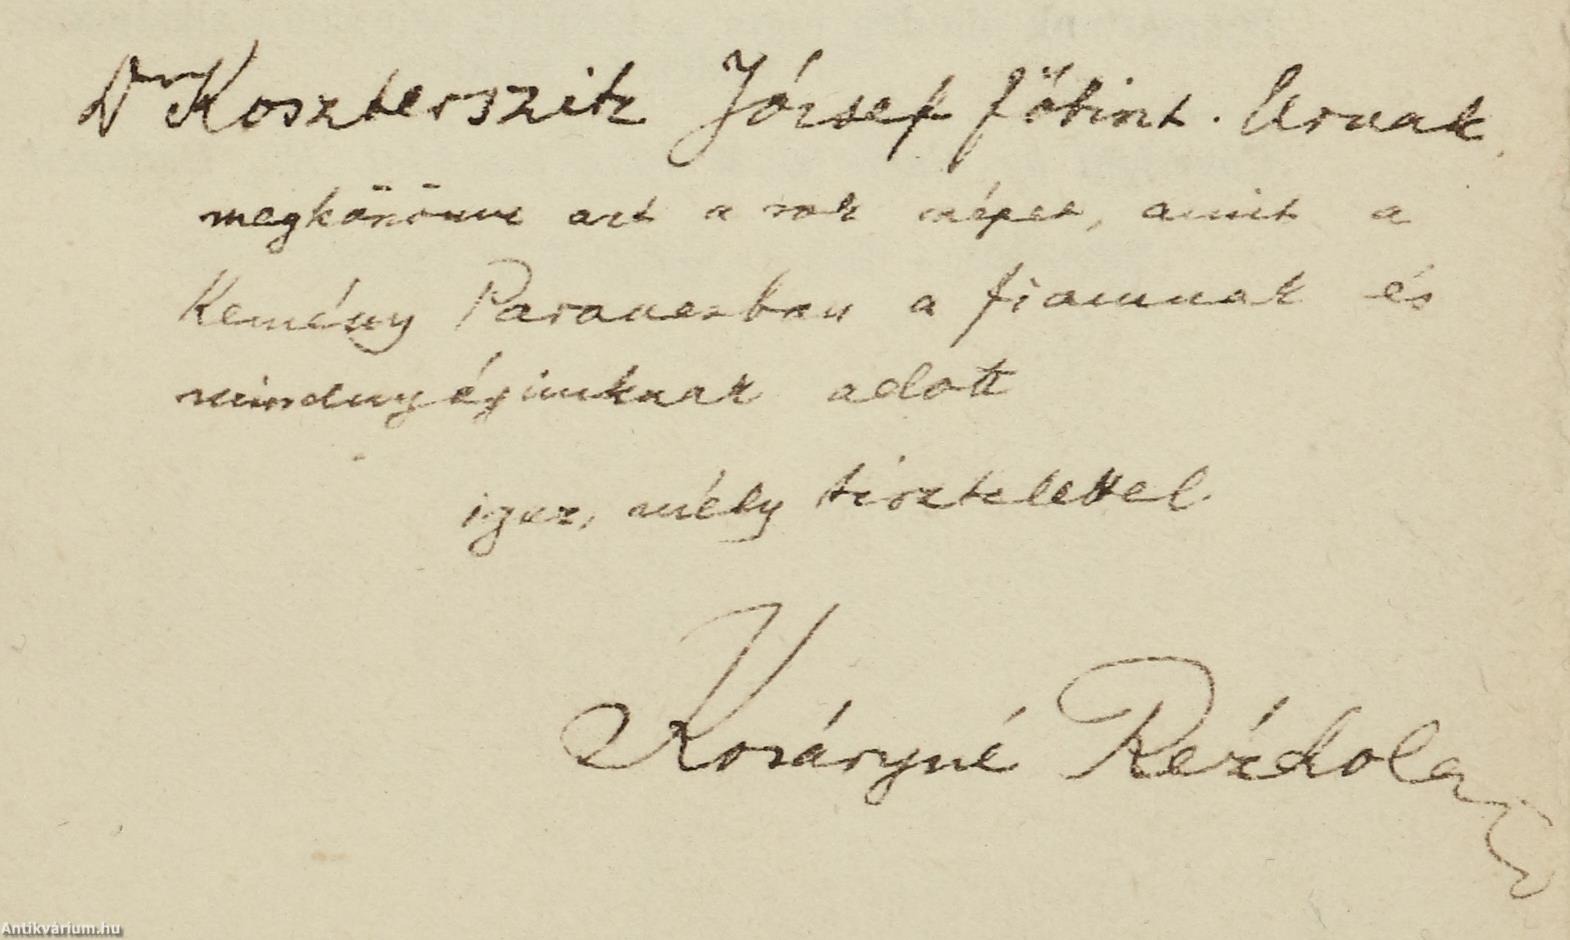 Dr Koszterszitz József főtint. Urnak
megköszönve azt a sok szépet, amit a
Kemény Parancsban a fiamnak és
mindnyájunknak adott
igaz, mély tisztelettel
Kosáryné Réz Lola
Antikvárium.hu